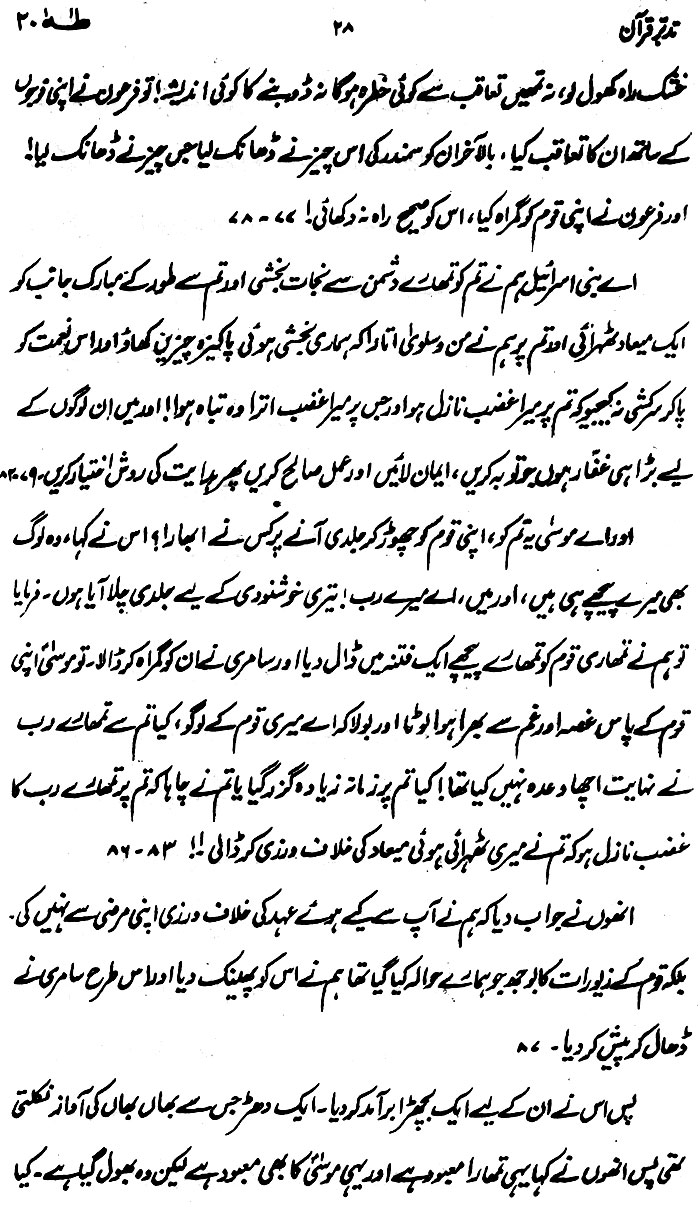 تدبر قرآن ۲۸ طٰهٰ ۲۰
خشک راہ کھول لو، نہ تمھیں تعاقب سے کوئی خطرہ ہوگا نہ ڈوبنے کا کوئی اندیشہ! تو فرعون نے اپنی فوجوں
کے ساتھ ان کا تعاقب کیا، بالآخر ان کو سمندر کی اس چیز نے ڈھانک لیا جس چیز نے ڈھانک لیا!
اور فرعون نے اپنی قوم کو گمراہ کیا، اس کو صحیح راہ نہ دکھائی! ۷۷-۷۸
اے بنی اسرائیل ہم نے تم کو تمھارے دشمن سے نجات بخشی اور تم سے طور کے مبارک جانب کو
ایک میعاد ٹھہرائی اور تم پر ہم نے من و سلویٰ اتارا کہ ہماری بخشی ہوئی پاکیزہ چیزیں کھاؤ اور اس نعمت کو
پا کر سرکشی نہ کیجیو کہ تم پر میرا غضب نازل ہو اور جس پر میرا غضب اترا وہ تباہ ہوا! اور میں ان لوگوں کے
لیے بڑا ہی غفّار ہوں جو توبہ کریں، ایمان لائیں اور عمل صالح کریں پھر ہدایت کی روش اختیار کریں۔ ۷۹-۸۲
اور اے موسیٰ یہ تم کو، اپنی قوم کو چھوڑ کر جلدی آنے پر کس نے ابھارا؟ اس نے کہا، وہ لوگ
بھی میرے پیچھے ہی ہیں، اور میں، اے میرے رب! تیری خوشنودی کے لیے جلدی چلا آیا ہوں۔ فرمایا
تو ہم نے تمھاری قوم کو تمھارے پیچھے ایک فتنہ میں ڈال دیا اور سامری نے ان کو گمراہ کر ڈالا۔ تو موسیٰؑ اپنی
قوم کے پاس غصہ اور غم سے بھرا ہوا لوٹا اور بولا کہ اے میری قوم کے لوگو، کیا تم سے تمھارے رب
نے نہایت اچھا وعدہ نہیں کیا تھا! کیا تم پر زمانہ زیادہ گزر گیا یا تم نے چاہا کہ تم پر تمھارے رب کا
غضب نازل ہو کہ تم نے میری ٹھہرائی ہوئی میعاد کی خلاف ورزی کر ڈالی!! ۸۳-۸۶
انھوں نے جواب دیا کہ ہم نے آپ سے کیے ہوئے عہد کی خلاف ورزی اپنی مرضی سے نہیں کی۔
بلکہ قوم کے زیورات کا بوجھ جو ہمارے حوالہ کیا گیا تھا ہم نے اس کو پھینک دیا اور اس طرح سامری نے
ڈھال کر پیش کر دیا۔ ۸۷
پس اس نے ان کے لیے ایک بچھڑا برآمد کر دیا۔ ایک دھڑ جس سے بھاں بھاں کی آواز نکلتی
تھی پس انھوں نے کہا یہی تمھارا معبود ہے اور یہی موسیٰؑ کا بھی معبود ہے لیکن وہ بھول گیا ہے۔ کیا